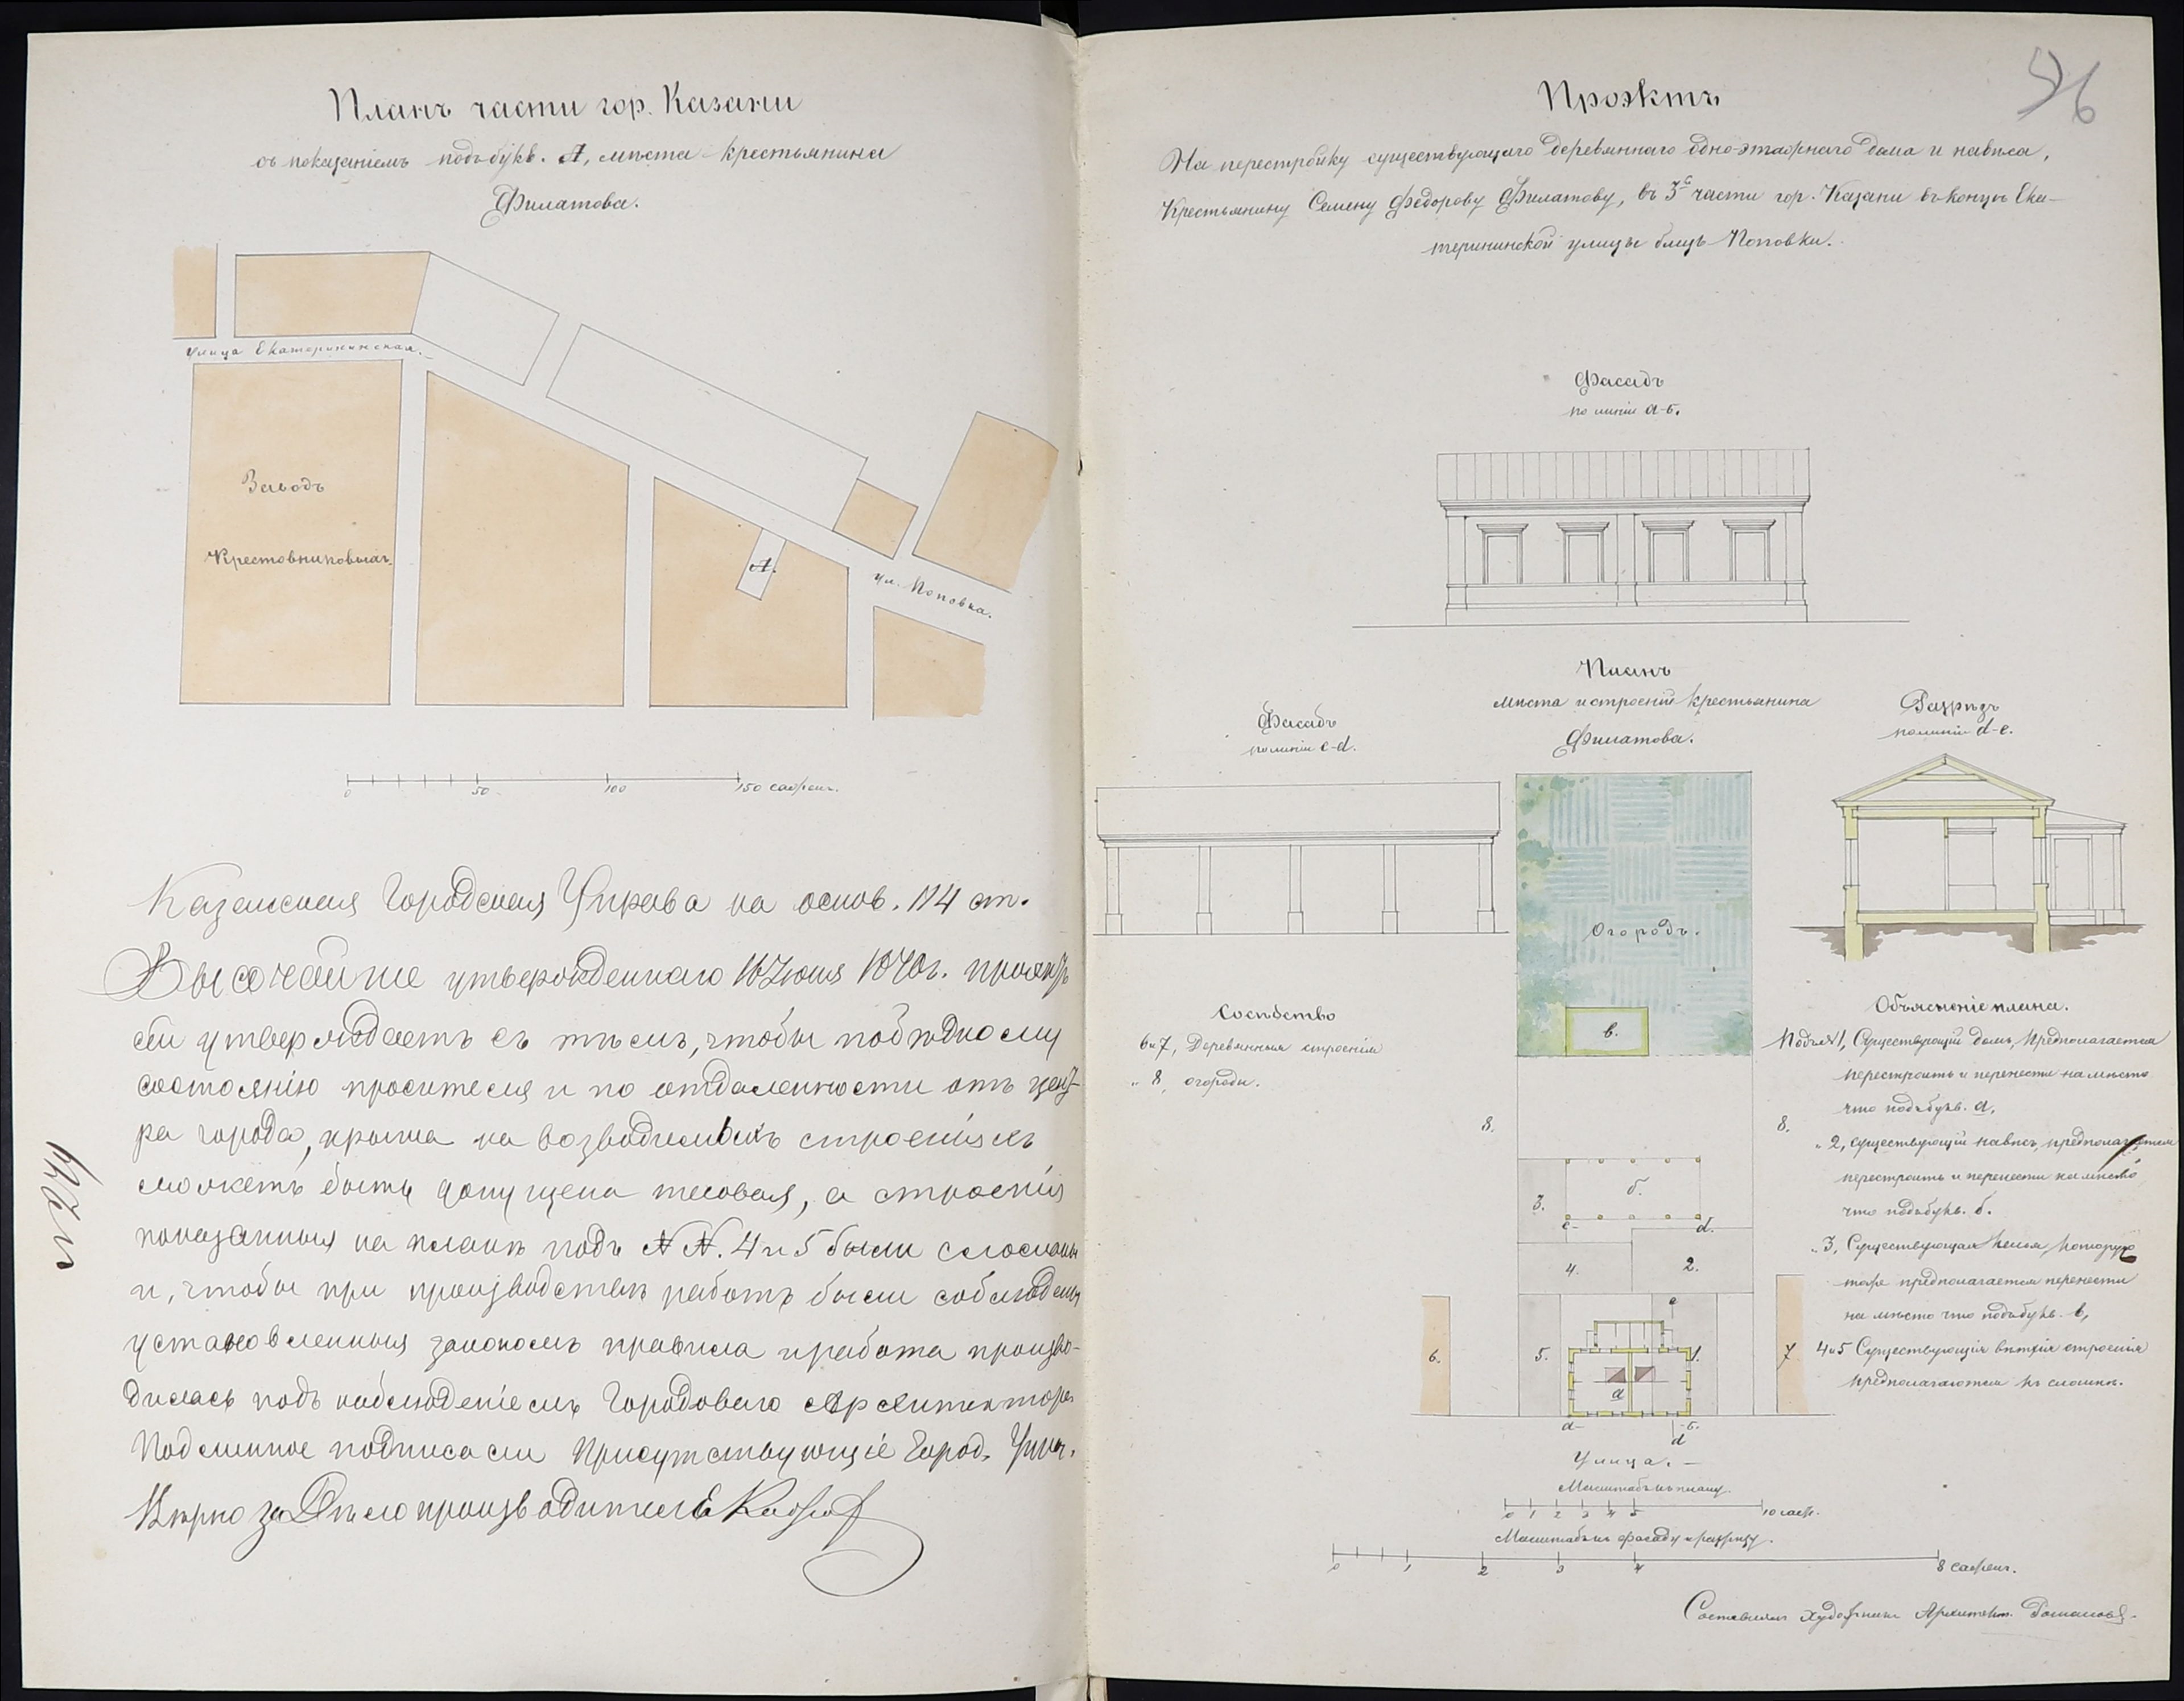 Планъ части гор. Казани
съ показаніемъ подъ букв. А, мѣста крестьянина
Филатова.
улица Екатерининская.
Заводъ
Крестовниковыхъ.
А.
ул. Поповка.
0 50 100 150 сажень.
Казанская Городская Управа на основ. 114 ст.
Высочайше утвержденнаго 16 Іюня 1870 г. проэктъ
сей утверждаетъ съ тѣмъ, чтобы по бѣдному
состоянію просителя и по отдаленности отъ цент-
ра города, крыша на возводимыхъ строеніяхъ
можетъ быть допущена тесовая, а строенія
показанныя на планѣ подъ №№. 4 и 5 были сломаны
и, чтобы при производствѣ работъ были соблюдены
установленныя закономъ правила и работа произво-
дилась подъ наблюденіемъ Городоваго Архитектора
Подлинное подписали Присутствующіе Город. Упр.
Вѣрно за Дѣлопроизводителя
Проэктъ
56
На перестройку существующаго деревяннаго одно-этажнаго дома и навѣса,
Крестьянину Семену Федорову Филатову, въ 3й части гор. Казани въ концѣ Ека-
терининской улицы близь Поповки.
Фасадъ
по линіи а-б.
Планъ
мѣста и строеній крестьянина
Филатова.
Фасадъ
по линіи c-d.
Разрѣзъ
по линіи d-e.
Огородъ.
в.
Сосѣдство
6 и 7, Деревянныя строенія
" 8, огороды.
Объясненіе плана.
Подъ №1, Существующій домъ, Предполагается
перестроить и перенести на мѣсто
что подъ букв. а.
" 2, существующій навѣсъ, предполагается
перестроить и перенести на мѣсто
что подъ букв. б.
" 3, Существующая келья, которую
тоже предполагается перенести
на мѣсто что подъ букв. в,
4 и 5 Существующія ветхія строенія
предполагаются къ сломкѣ.
8. 8.
3. б.
c- d.
4. 2.
e
6. 5. а 1. 7
а- -б.
d
Улица.
Масштабъ къ плану.
0 1 2 3 4 5 10 саж.
Масштабъ къ фасаду и разрѣзу.
0 1 2 3 4 8 сажень.
Составилъ художникъ Архитект. Романовъ